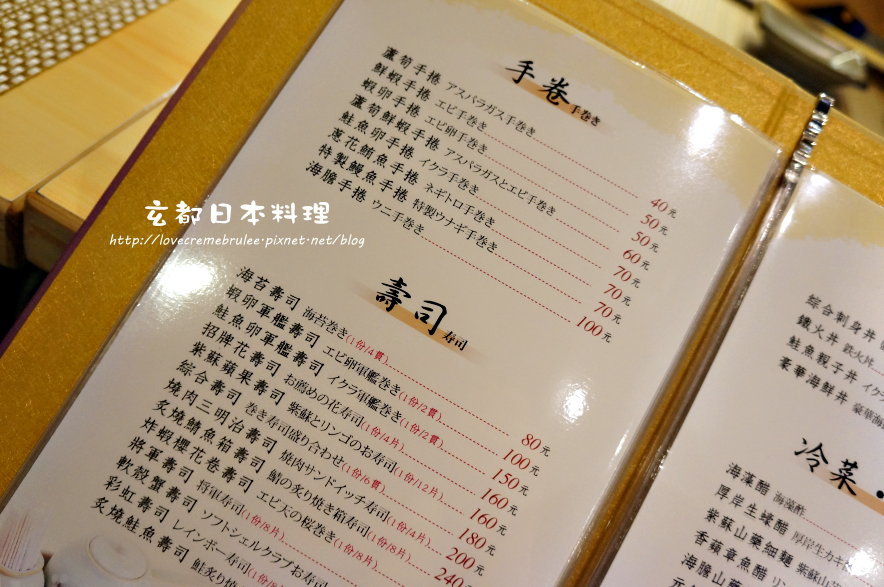 手卷 手巻き
蘆筍手捲 アスパラガス手巻き 40元
鮮蝦手捲 エビ手巻き 50元
蝦卵手捲 エビ卵手巻き 50元
蘆筍鮮蝦手捲 アスパラガスとエビ手巻き 60元
鮭魚卵手捲 イクラ手巻き 70元
蔥花鮪魚手捲 ネギトロ手巻き 70元
特製鰻魚手捲 特製ウナギ手巻き 70元
海膽手捲 ウニ手巻き 100元
玄都日本料理
http://lovecremebrulee.pixnet.net/blog
壽司 寿司
海苔壽司 海苔巻き(1份/4貫) 80元
蝦卵軍艦壽司 エビ卵軍艦巻き(1份/2貫) 100元
鮭魚卵軍艦壽司 イクラ軍艦巻き(1份/2貫) 150元
招牌花壽司 お薦めの花寿司(1份/4片) 160元
紫蘇蘋果壽司 紫蘇とリンゴのお寿司(1份/12片) 160元
綜合壽司 巻き寿司盛り合わせ(1份/6貫) 180元
燒肉三明治壽司 焼肉サンドイッチ寿司(1份/4片) 200元
炙燒鯖魚箱壽司 鯖の炙り焼き箱寿司(1份/8片) 240元
炸蝦櫻花卷壽司 エビ天の桜巻き
將軍壽司 将軍寿司(1份/8片)
軟殼蟹壽司 ソフトシェルクラブお寿司
彩虹壽司 レインボー寿司(1份/8片)
炙燒鮭魚壽司 鮭炙り焼
綜合刺身丼
鐵火丼 鉄火丼
鮭魚親子丼 イクラ
豪華海鮮丼 豪華海
冷菜
海藻醋 海藻酢
厚岸生蠔醋 厚岸生カキ
紫蘇山藥細麵 紫蘇山
香蘋章魚醋 リン
海膽山